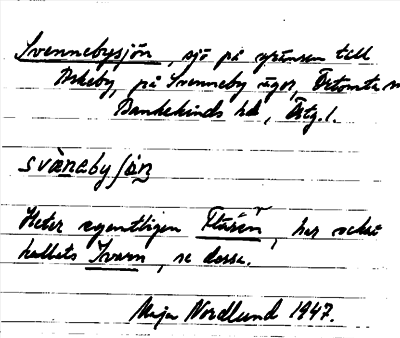 Svennebysjön, sjö på gränsen till
Askeby, på Svenneby ägor, Örtomta sn
Bankekinds hd, Östg. l.
svänebysjön
Heter egentligen Flären, har också
kallats Tvaren, se dessa.
Maja Nordlund 1947.